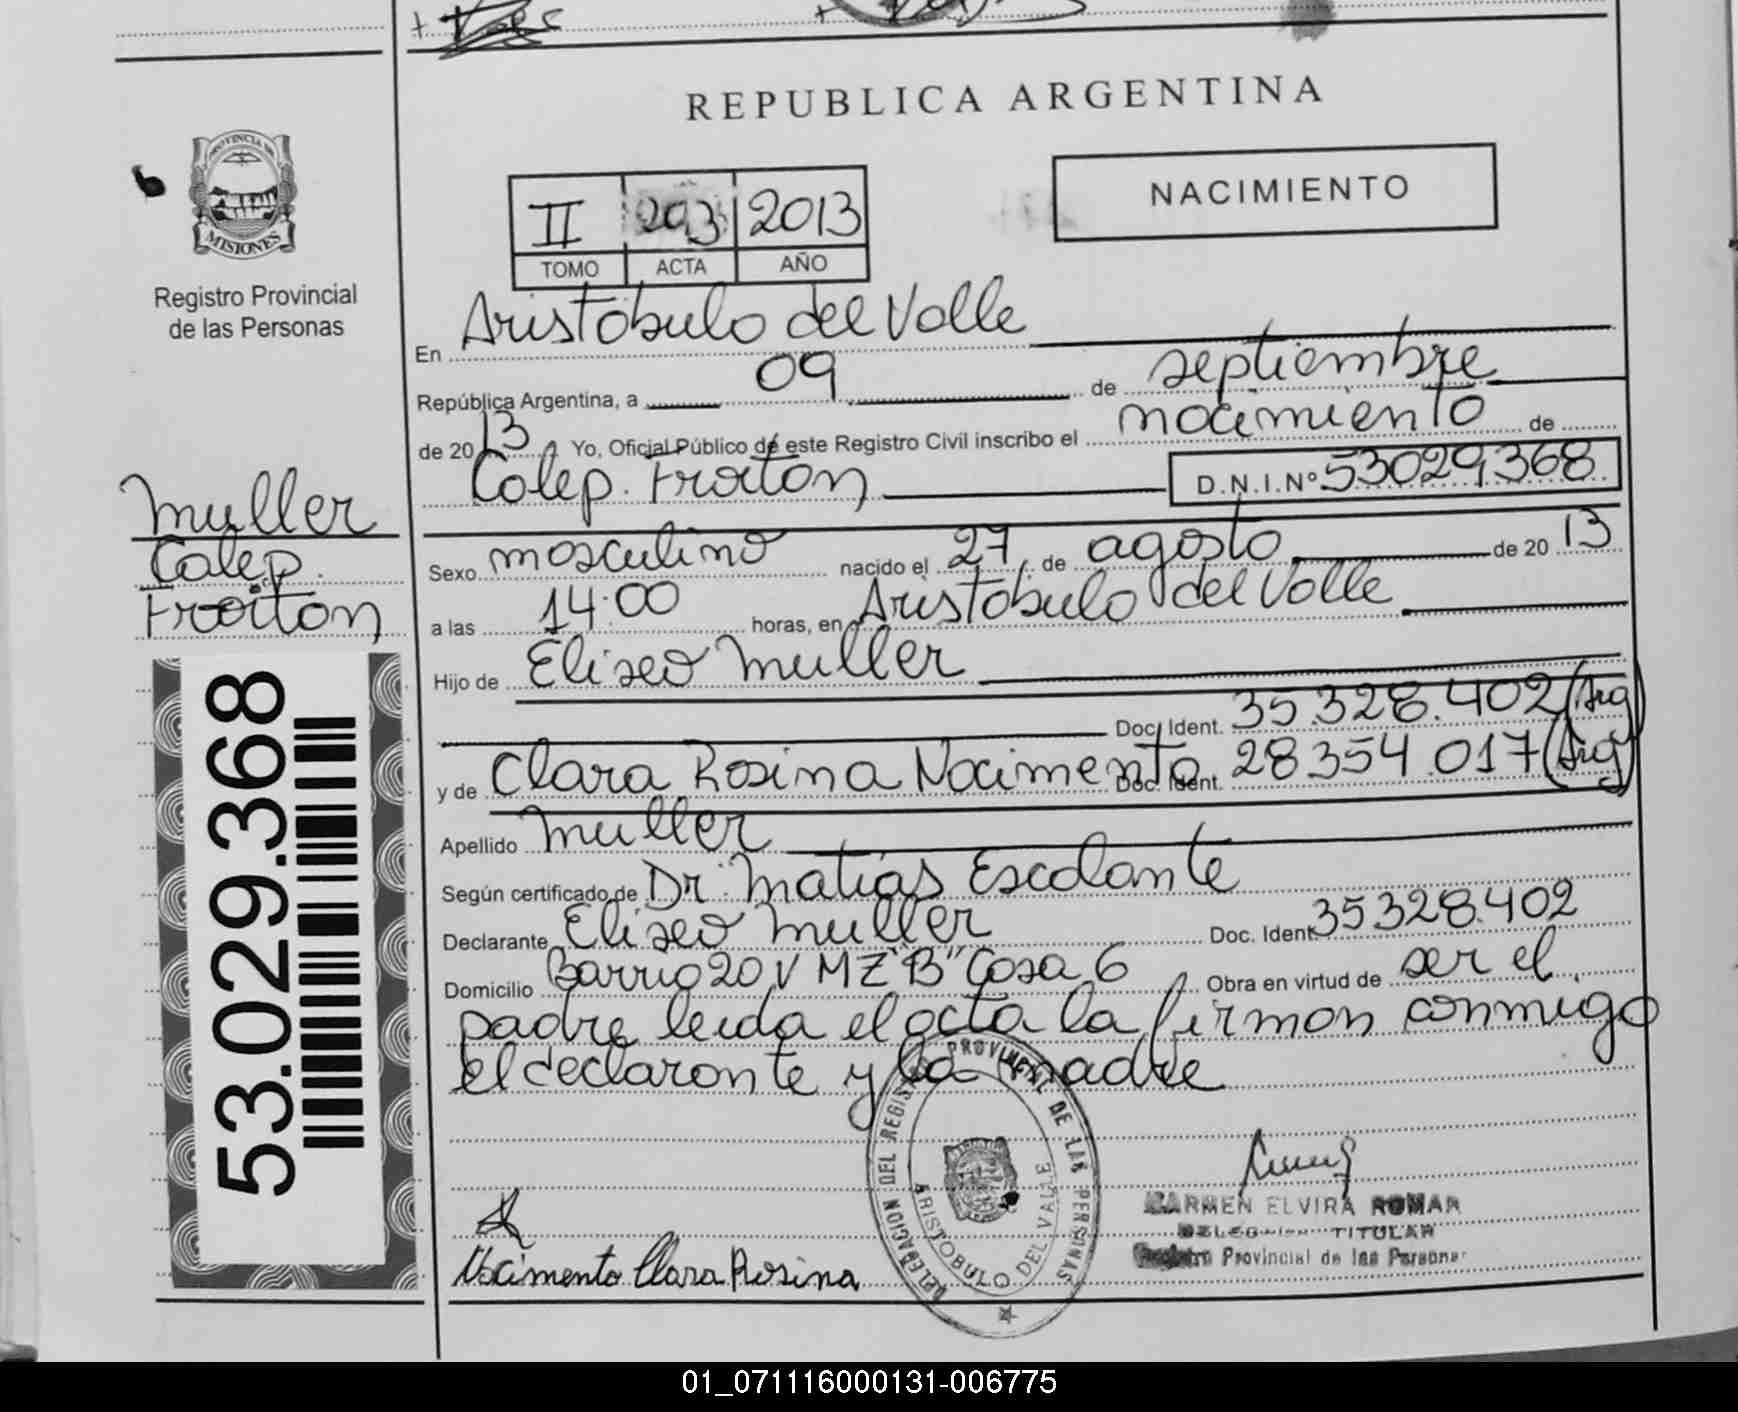 REPUBLICA ARGENTINA
PROVINCIA DE
MISIONES
Registro Provincial
de las Personas
II 203 2013
TOMO ACTA AÑO
NACIMIENTO
En Aristobulo del Valle
República Argentina, a 09 de septiembre
de 2013 Yo, Oficial Público de este Registro Civil inscribo el nacimiento de
Calep Froiton D.N.I.Nº 53029.368
Muller
Calep
Froiton
53.029.368
Sexo masculino nacido el 27 de agosto de 2013
a las 14:00 horas, en Aristobulo del Valle
Hijo de Eliseo Muller
Doc. Ident. 35.328.402 (Arg)
y de Clara Rosina Nacimento Doc. Ident. 28354.017 (Arg)
Apellido Muller
Según certificado de Dr. Matias Escalante
Declarante Eliseo Muller Doc. Ident. 35328.402
Domicilio Barrio 20 V MZ "B" Casa 6 Obra en virtud de ser el
padre leida el acta la firman conmigo
el declarante y la madre
DELEGACION DEL REGISTRO PROVINCIAL DE LAS PERSONAS
ARISTOBULO DEL VALLE
CARMEN ELVIRA ROMAN
DELEGADA TITULAR
Registro Provincial de las Personas
Nacimento Clara Rosina
01_071116000131-006775